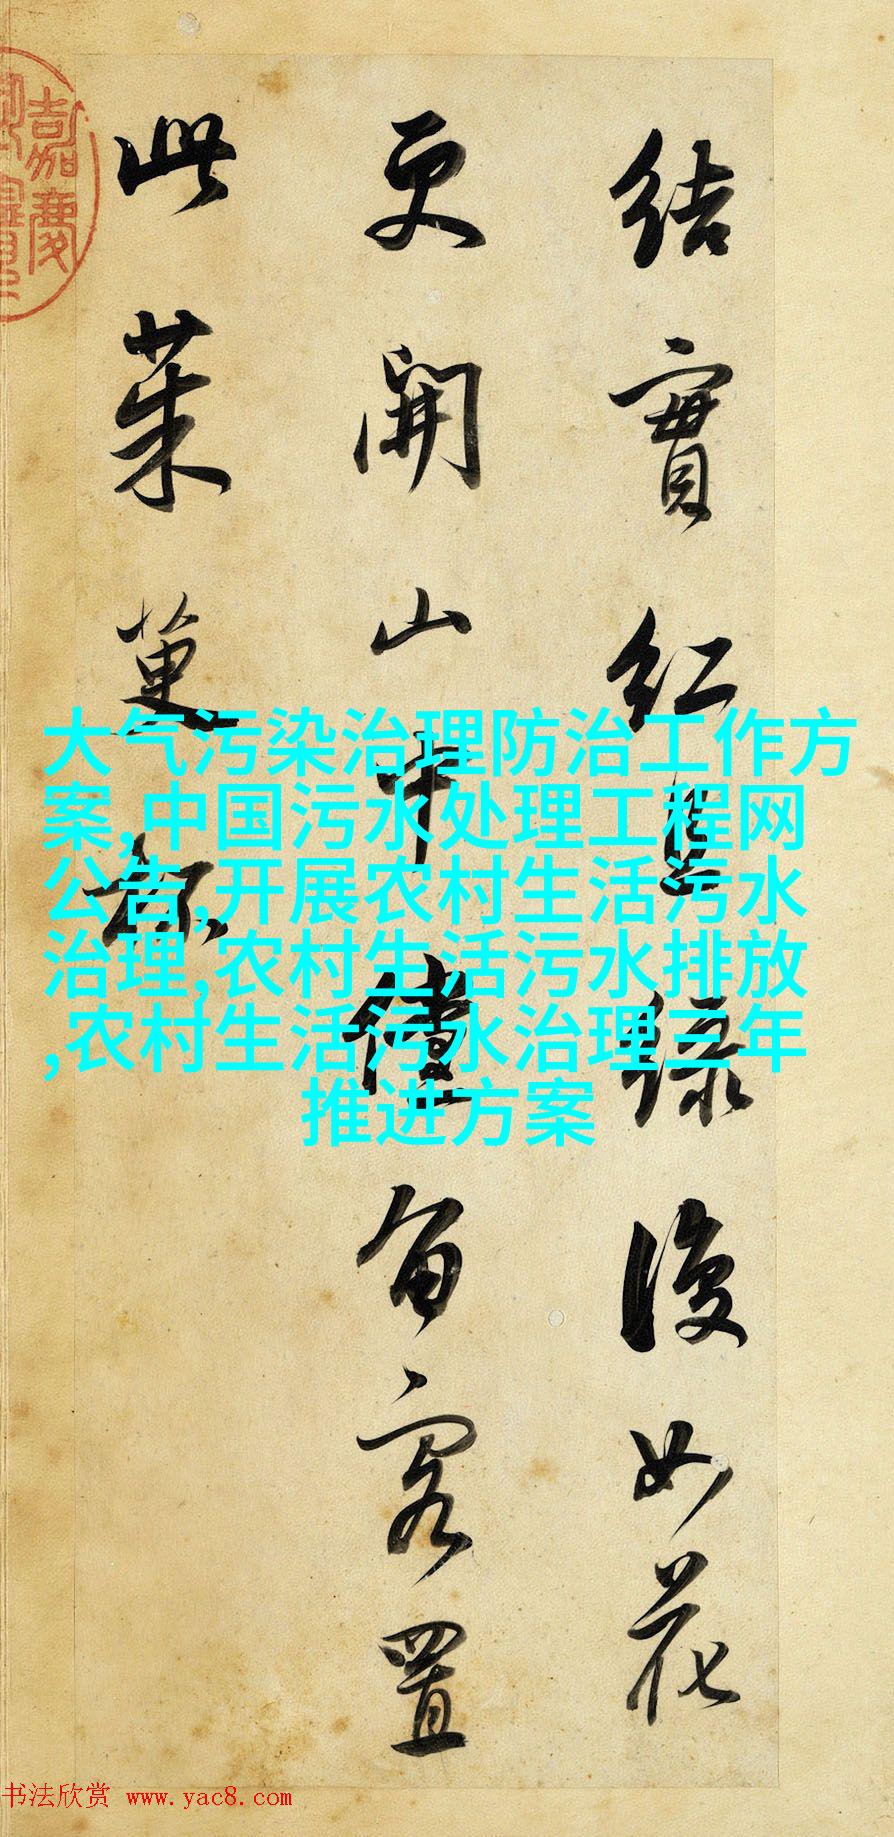 結實紅且綠復如花
更開山中儻留客置
此茱萸杯
嘉慶
大气污染治理防治工作方
案,中国污水处理工程网
公告,开展农村生活污水
治理,农村生活污水排放
,农村生活污水治理三年
推进方案
书法欣赏 www.yac8.com